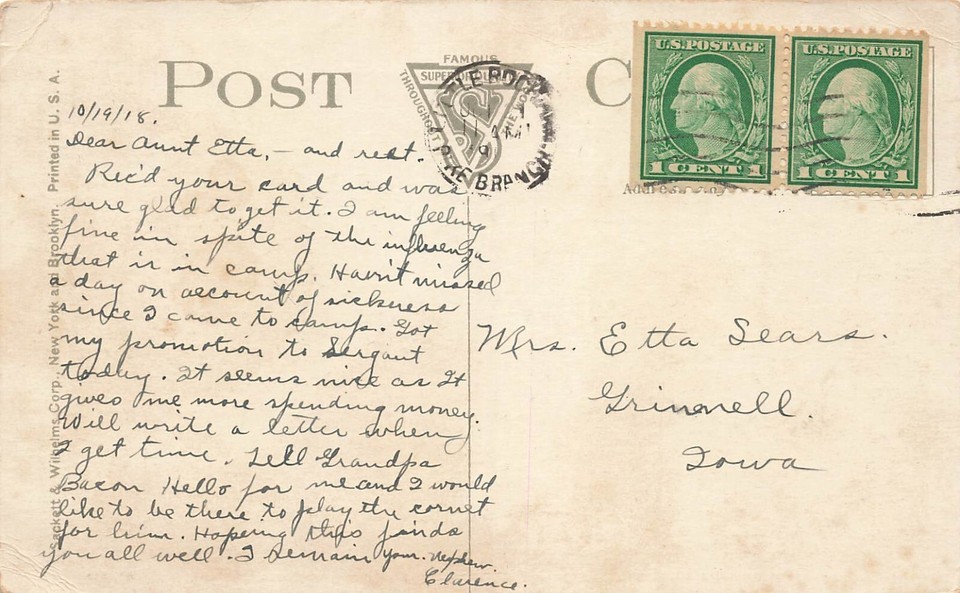 POST C
FAMOUS
SUPERIOR QUALITY
THROUGHOUT THE WORLD
LITTLE ROCK, ARK.
1 AM
19
PIKE BRANCH
U.S. POSTAGE
1 CENT 1
U.S. POSTAGE
1 CENT 1
Address
Sackett & Wilhelms Corp., New York and Brooklyn. Printed in U. S. A.
10/19/18.
Dear Aunt Etta, — and rest.
Rec'd your card and was
sure glad to get it. I am feeling
fine in spite of the influenza
that is in camp. Havn't missed
a day on account of sickness
since I came to camp. Got
my promotion to Sergant
today. It seems nice as It
gives me more spending money.
Will write a letter when
I get time. Tell Grandpa
Bacon Hello for me and I would
like to be there to play the cornet
for him. Hopeing this finds
you all well. I remain your nephew.
Clarence.
Mrs. Etta Sears.
Grinnell.
Iowa